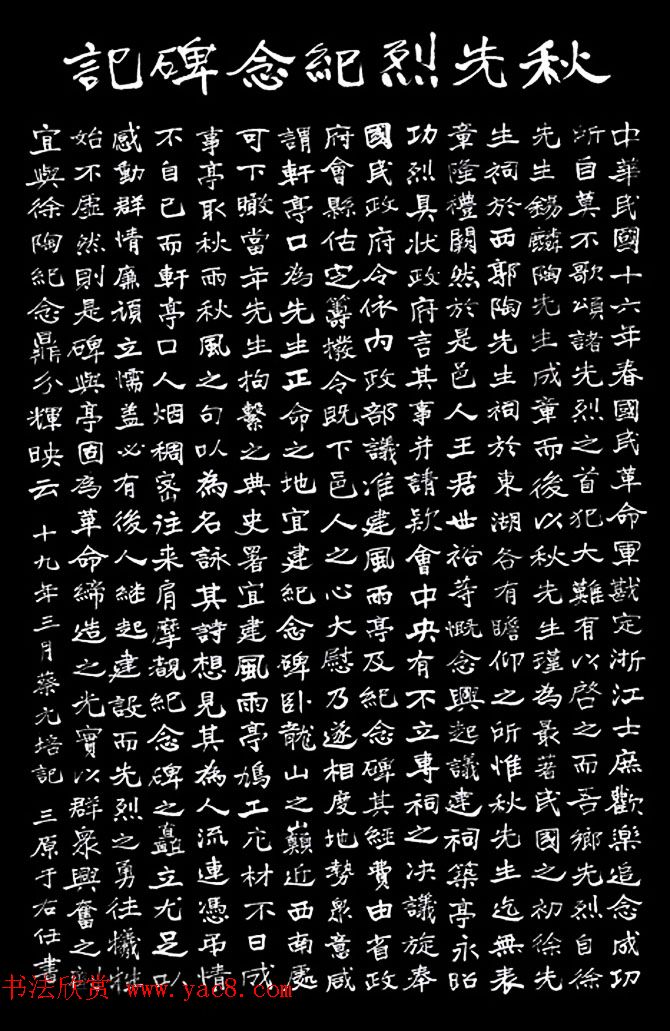 秋先烈紀念碑記
中華民國十六年春國民革命軍戡定浙江士庶歡樂追念成功
所自莫不歌頌諸先烈之首犯大難有以啓之而吾鄉先烈自徐
先生錫麟陶先生成章而後以秋先生瑾為最著民國之初徐先
生祠於西郭陶先生祠於東湖各有瞻仰之所惟秋先生迄無表
章隆禮闕然於是邑人王君世裕等慨念興起議建祠築亭永昭
功烈具狀政府言其事并請欵會中央有不立專祠之决議旋奉
國民政府令依內政部議准建風雨亭及紀念碑其經費由省政
府會縣估定籌撥令既下邑人之心大慰乃遂相度地勢衆意咸
謂軒亭口為先生正命之地宜建紀念碑卧龍山之巔近西南處
可下瞰當年先生拘繫之典史署宜建風雨亭鳩工庀材不日成
事亭取秋雨秋風之句以為名詠其詩想見其為人流連憑弔情
不自已而軒亭口人烟稠密往来肩摩覩紀念碑之矗立尤足以
感動群情廉頑立懦盖必有後人継起建設而先烈之勇往犧牲
始不虛然則是碑與亭固為革命締造之光實以群衆興奮之
宜與徐陶紀念鼎分輝映云 十九年三月蔡元培記 三原于右任書
书法欣赏 www.yac8.com